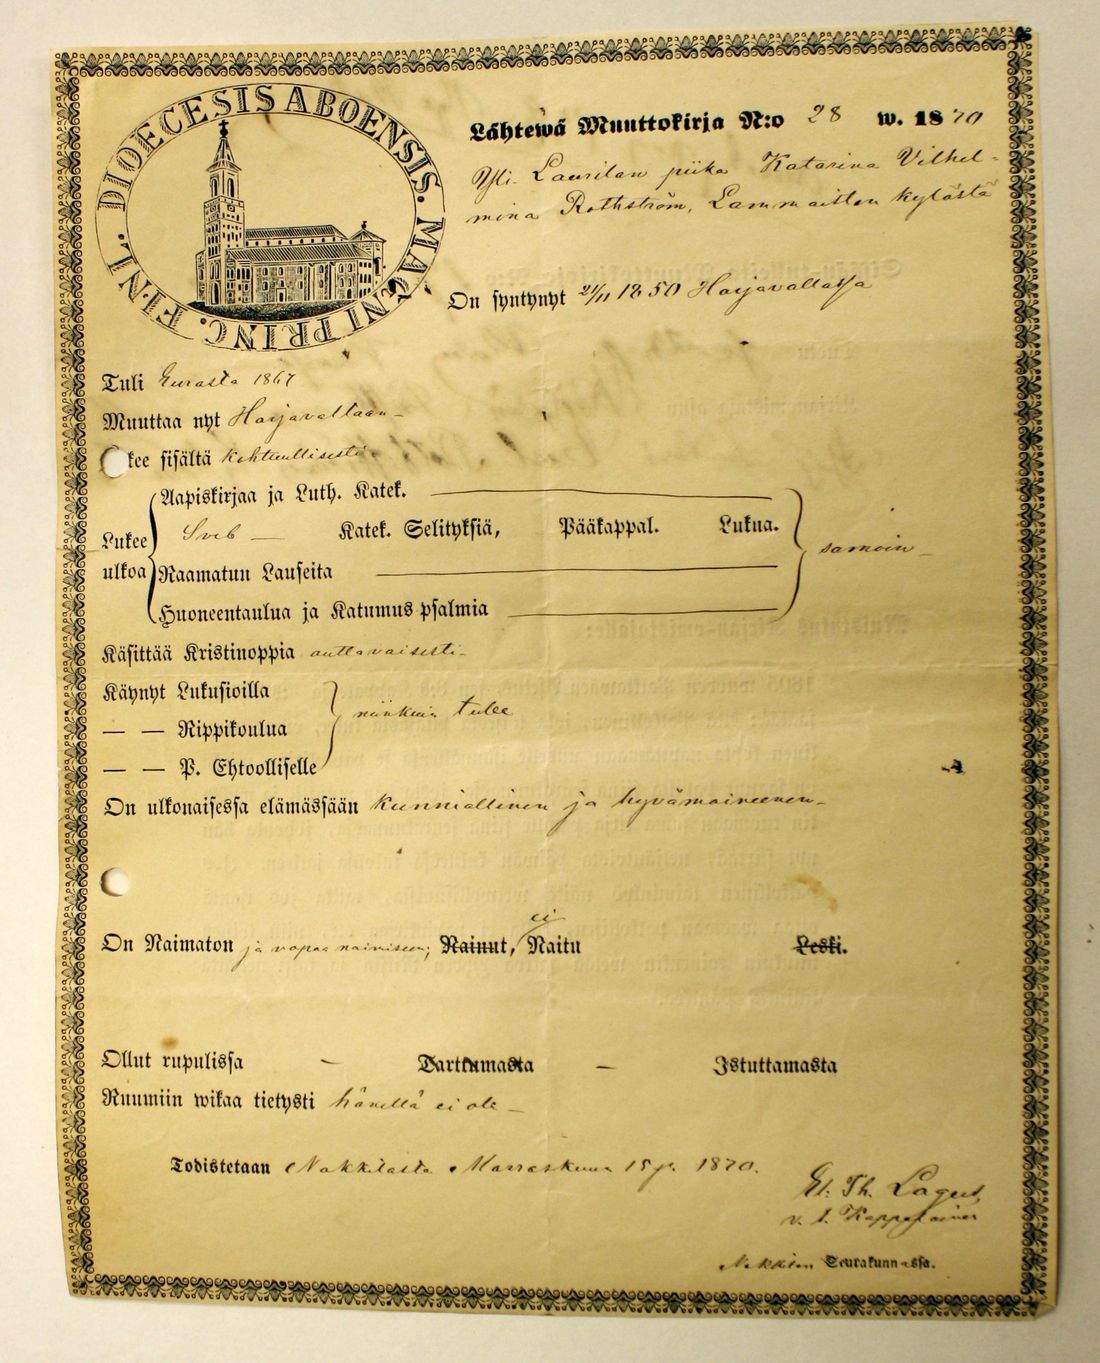 DIOECESIS ABOENSIS. MAGNI PRINC. FINL.
Lähtewä Muuttokirja N:o 28 w. 1870
Yli-Laurilan piika Katarina Vilhel-
mina Rothström, Lammaisten kylästä
On syntynyt 21/11 1850 Harjavallassa
Tuli Eurasta 1867
Muuttaa nyt Harjavaltaan -
kee sisältä kohtuullisesti -
Aapiskirjaa ja Luth. Katek.
Lukee Sveb - Katek. Selityksiä, Pääkappal. Lukua. samoin -
ulkoa Raamatun Lauseita
Huoneentaulua ja Katumus-psalmia
Käsittää Kristinoppia auttavaisesti -
Käynyt Lukusioilla
— — Rippikoulua niinkuin tulee
— — P. Ehtoolliselle
On ulkonaisessa elämässään kunniallinen ja hyvämaineenen -
ei
On Naimaton ja vapaa naimiseen; Nainut, Naitu Leski.
Ollut rupulissa — Tarttumasta — Istuttamasta
Ruumiin wikaa tietysti hänellä ei ole -
Todistetaan Nakkilasta Marraskuun 15 p. 1870.
Th. Lagus
v. t. Kappalainen
Nakkilan Seurakunnassa.